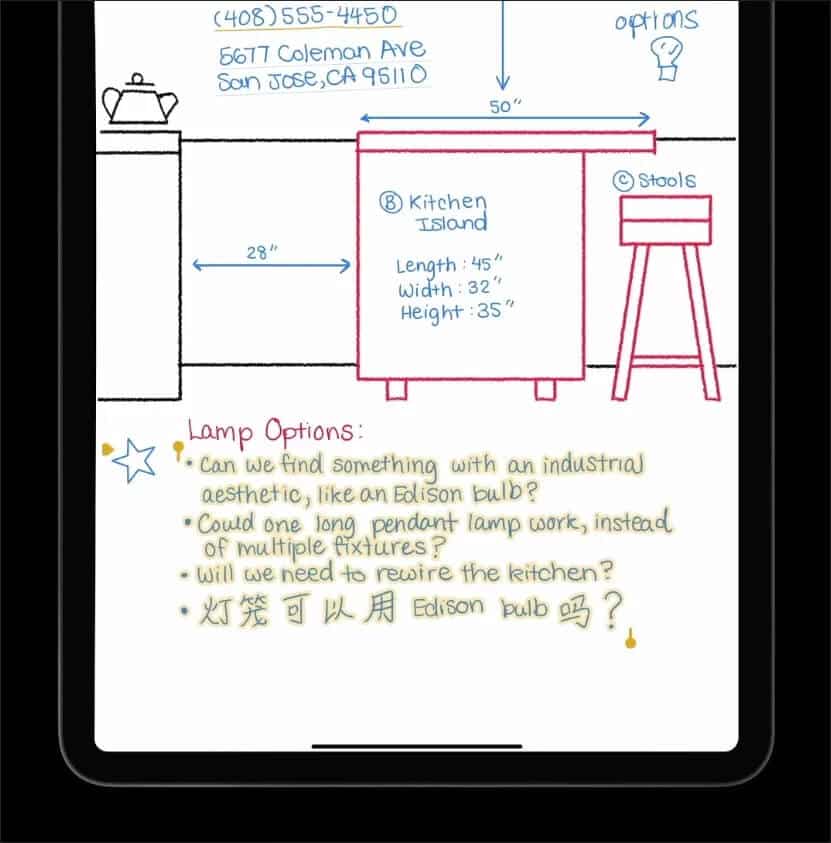 (408)555-4450
5677 Coleman Ave
San Jose, CA 95110
options
50"
Ⓒ Stools
Ⓑ Kitchen
Island
28"
Length : 45"
Width : 32"
Height : 35"
Lamp Options:
• Can we find something with an industrial
aesthetic, like an Edison bulb?
• Could one long pendant lamp work, instead
of multiple fixtures?
• Will we need to rewire the kitchen?
• 灯笼可以用 Edison bulb 吗?